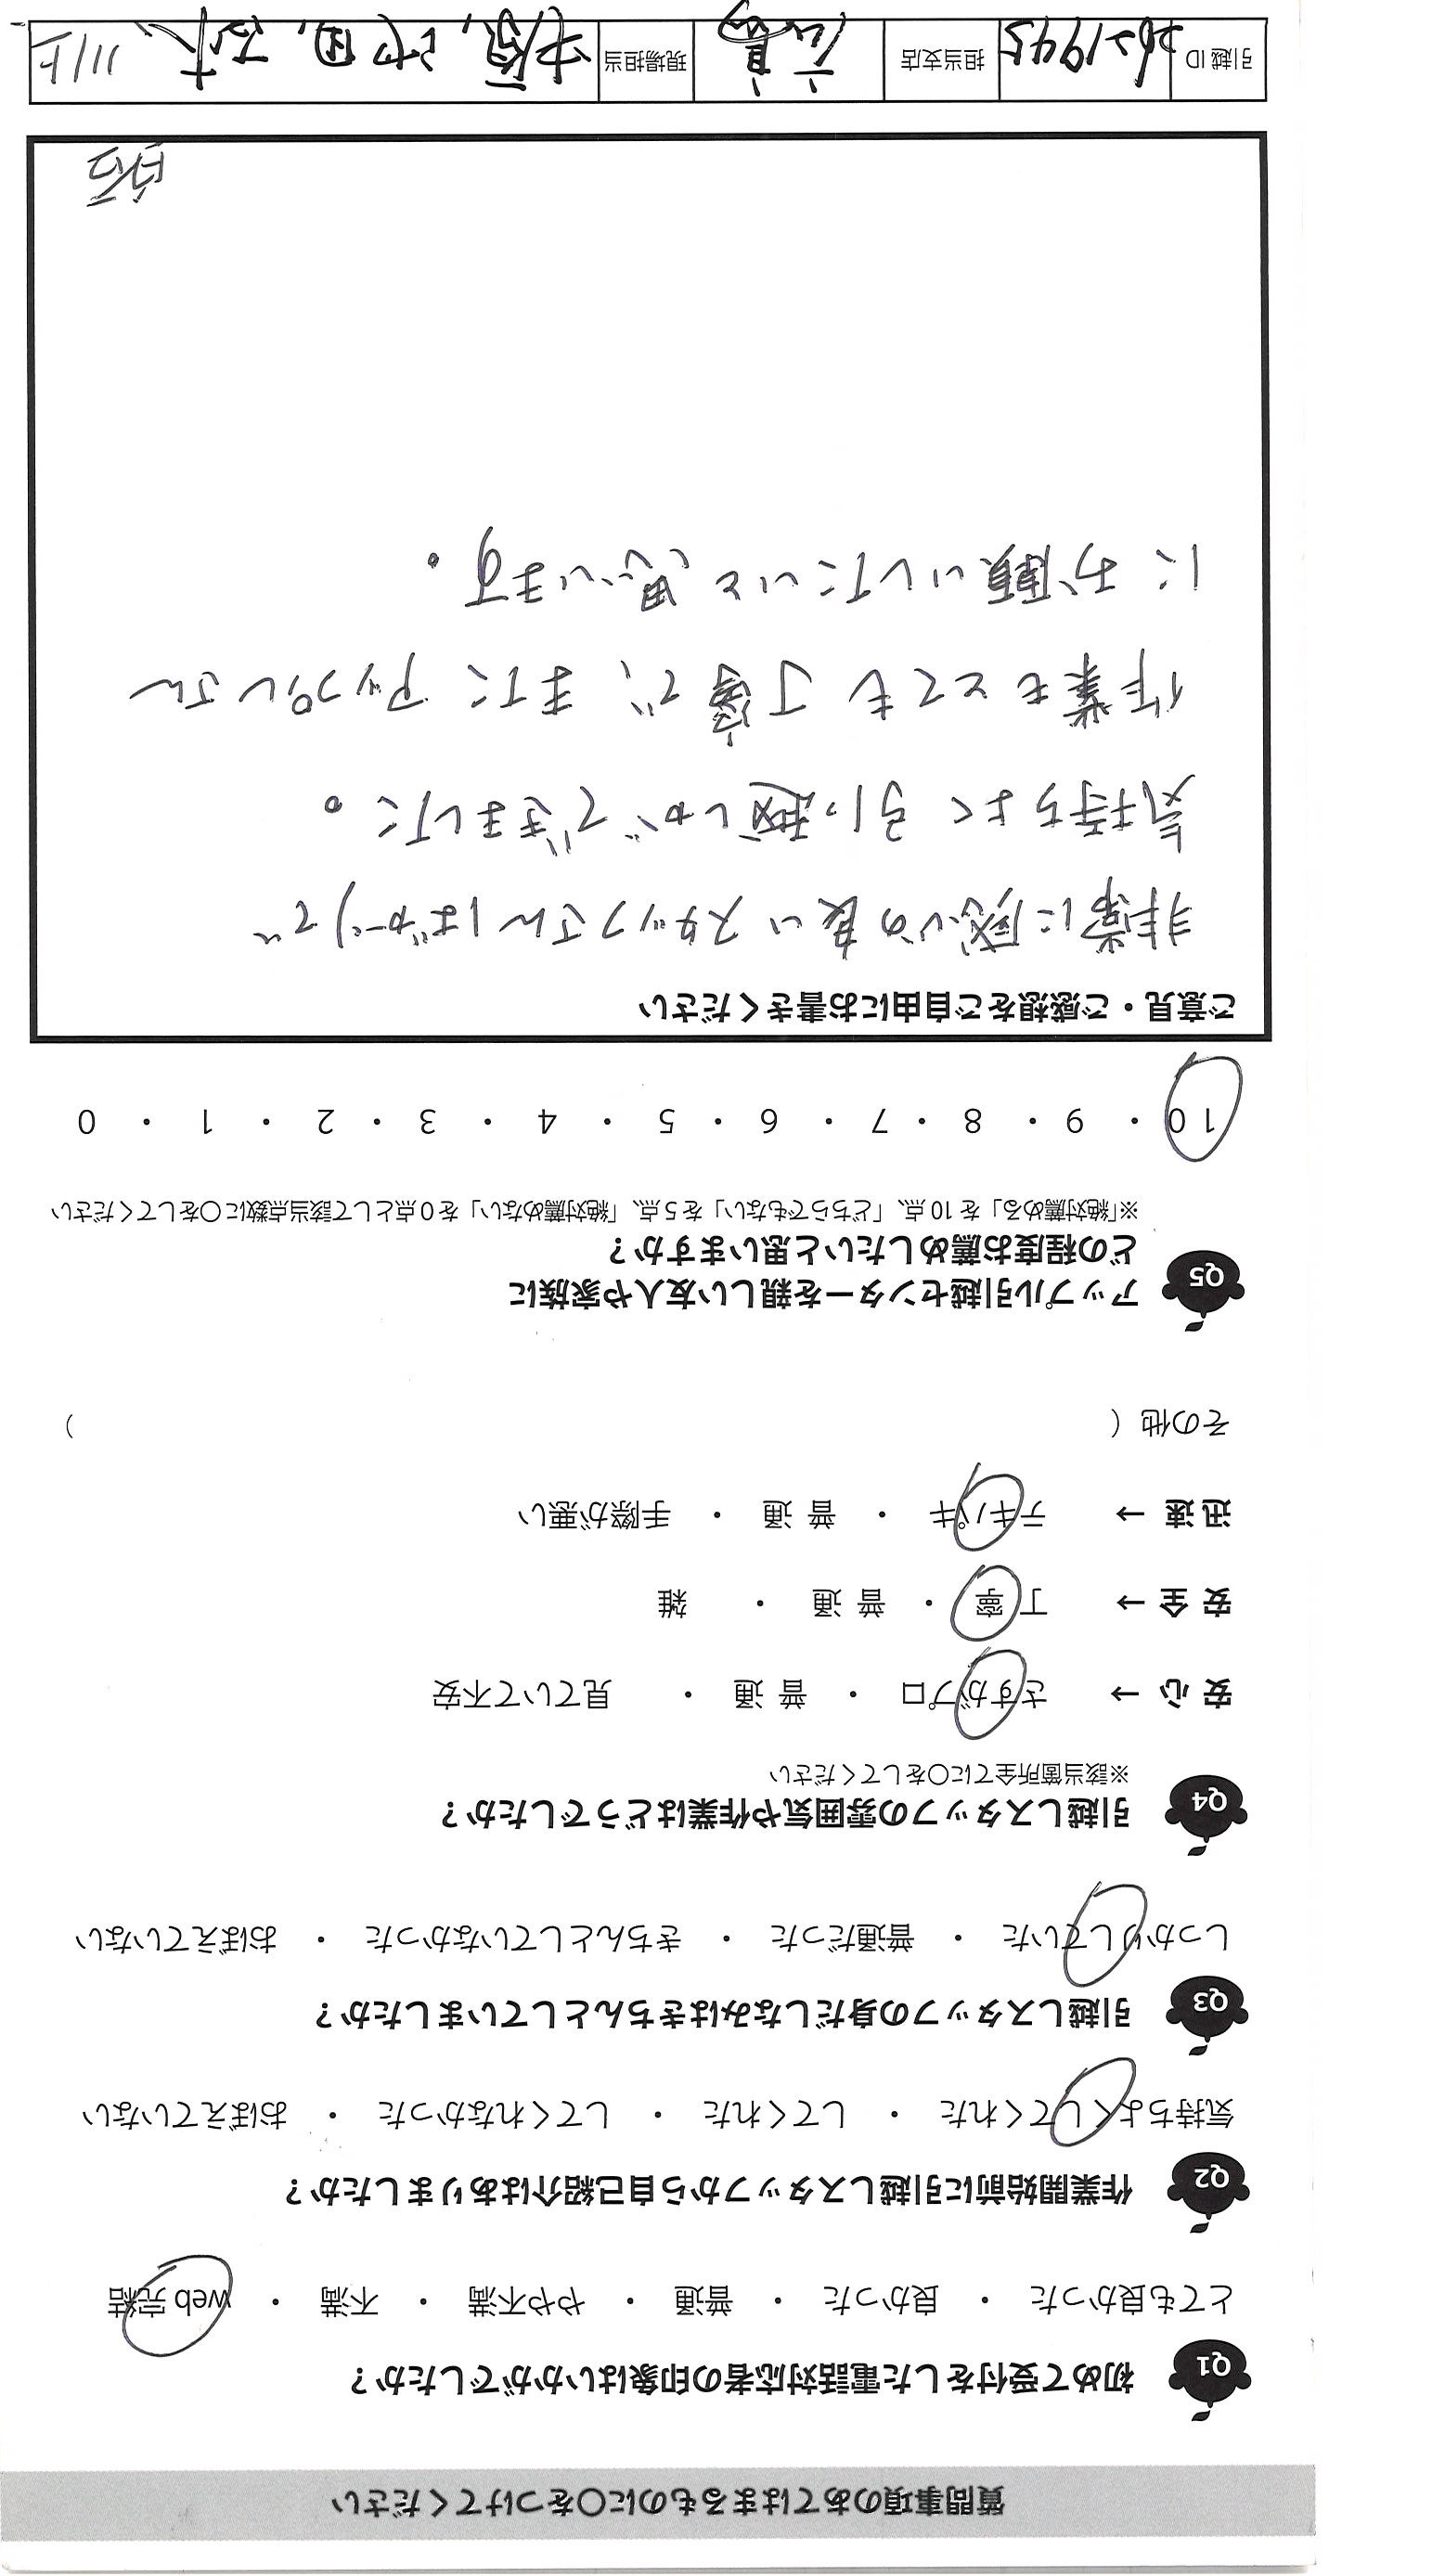 質問事項のあてはまるものに○をつけてください
Q1 初めて受付をした電話対応者の印象はいかがでしたか？
とても良かった ・ 良かった ・ 普通 ・ やや不満 ・ 不満 ・ web 完結
Q2 作業開始前に引越しスタッフから自己紹介はありましたか？
気持ちよくしてくれた ・ してくれた ・ してくれなかった ・ おぼえていない
Q3 引越しスタッフの身だしなみはきちんとしていましたか？
しっかりしていた ・ 普通だった ・ きちんとしていなかった ・ おぼえていない
Q4 引越しスタッフの雰囲気や作業はどうでしたか？
※該当箇所全てに○をしてください
安心 → さすがプロ ・ 普通 ・ 見ていて不安
安全 → 丁寧 ・ 普通 ・ 雑
迅速 → テキパキ ・ 普通 ・ 手際が悪い
その他（ ）
Q5 アップル引越センターを親しい友人や家族に
どの程度お薦めしたいと思いますか？
※「絶対薦める」を 10 点、「どちらでもない」を 5 点、「絶対薦めない」を 0 点として該当点数に○をしてください
10 ・ 9 ・ 8 ・ 7 ・ 6 ・ 5 ・ 4 ・ 3 ・ 2 ・ 1 ・ 0
ご意見・ご感想をご自由にお書きください
非常に感じの良いスタッフさんばかりで
気持ちよく引っ越しができました。
作業もとても丁寧で、またアップルさん
にお願いしたいと思います。
引越 ID 2621945 担当支店 広島 現場担当
11/1